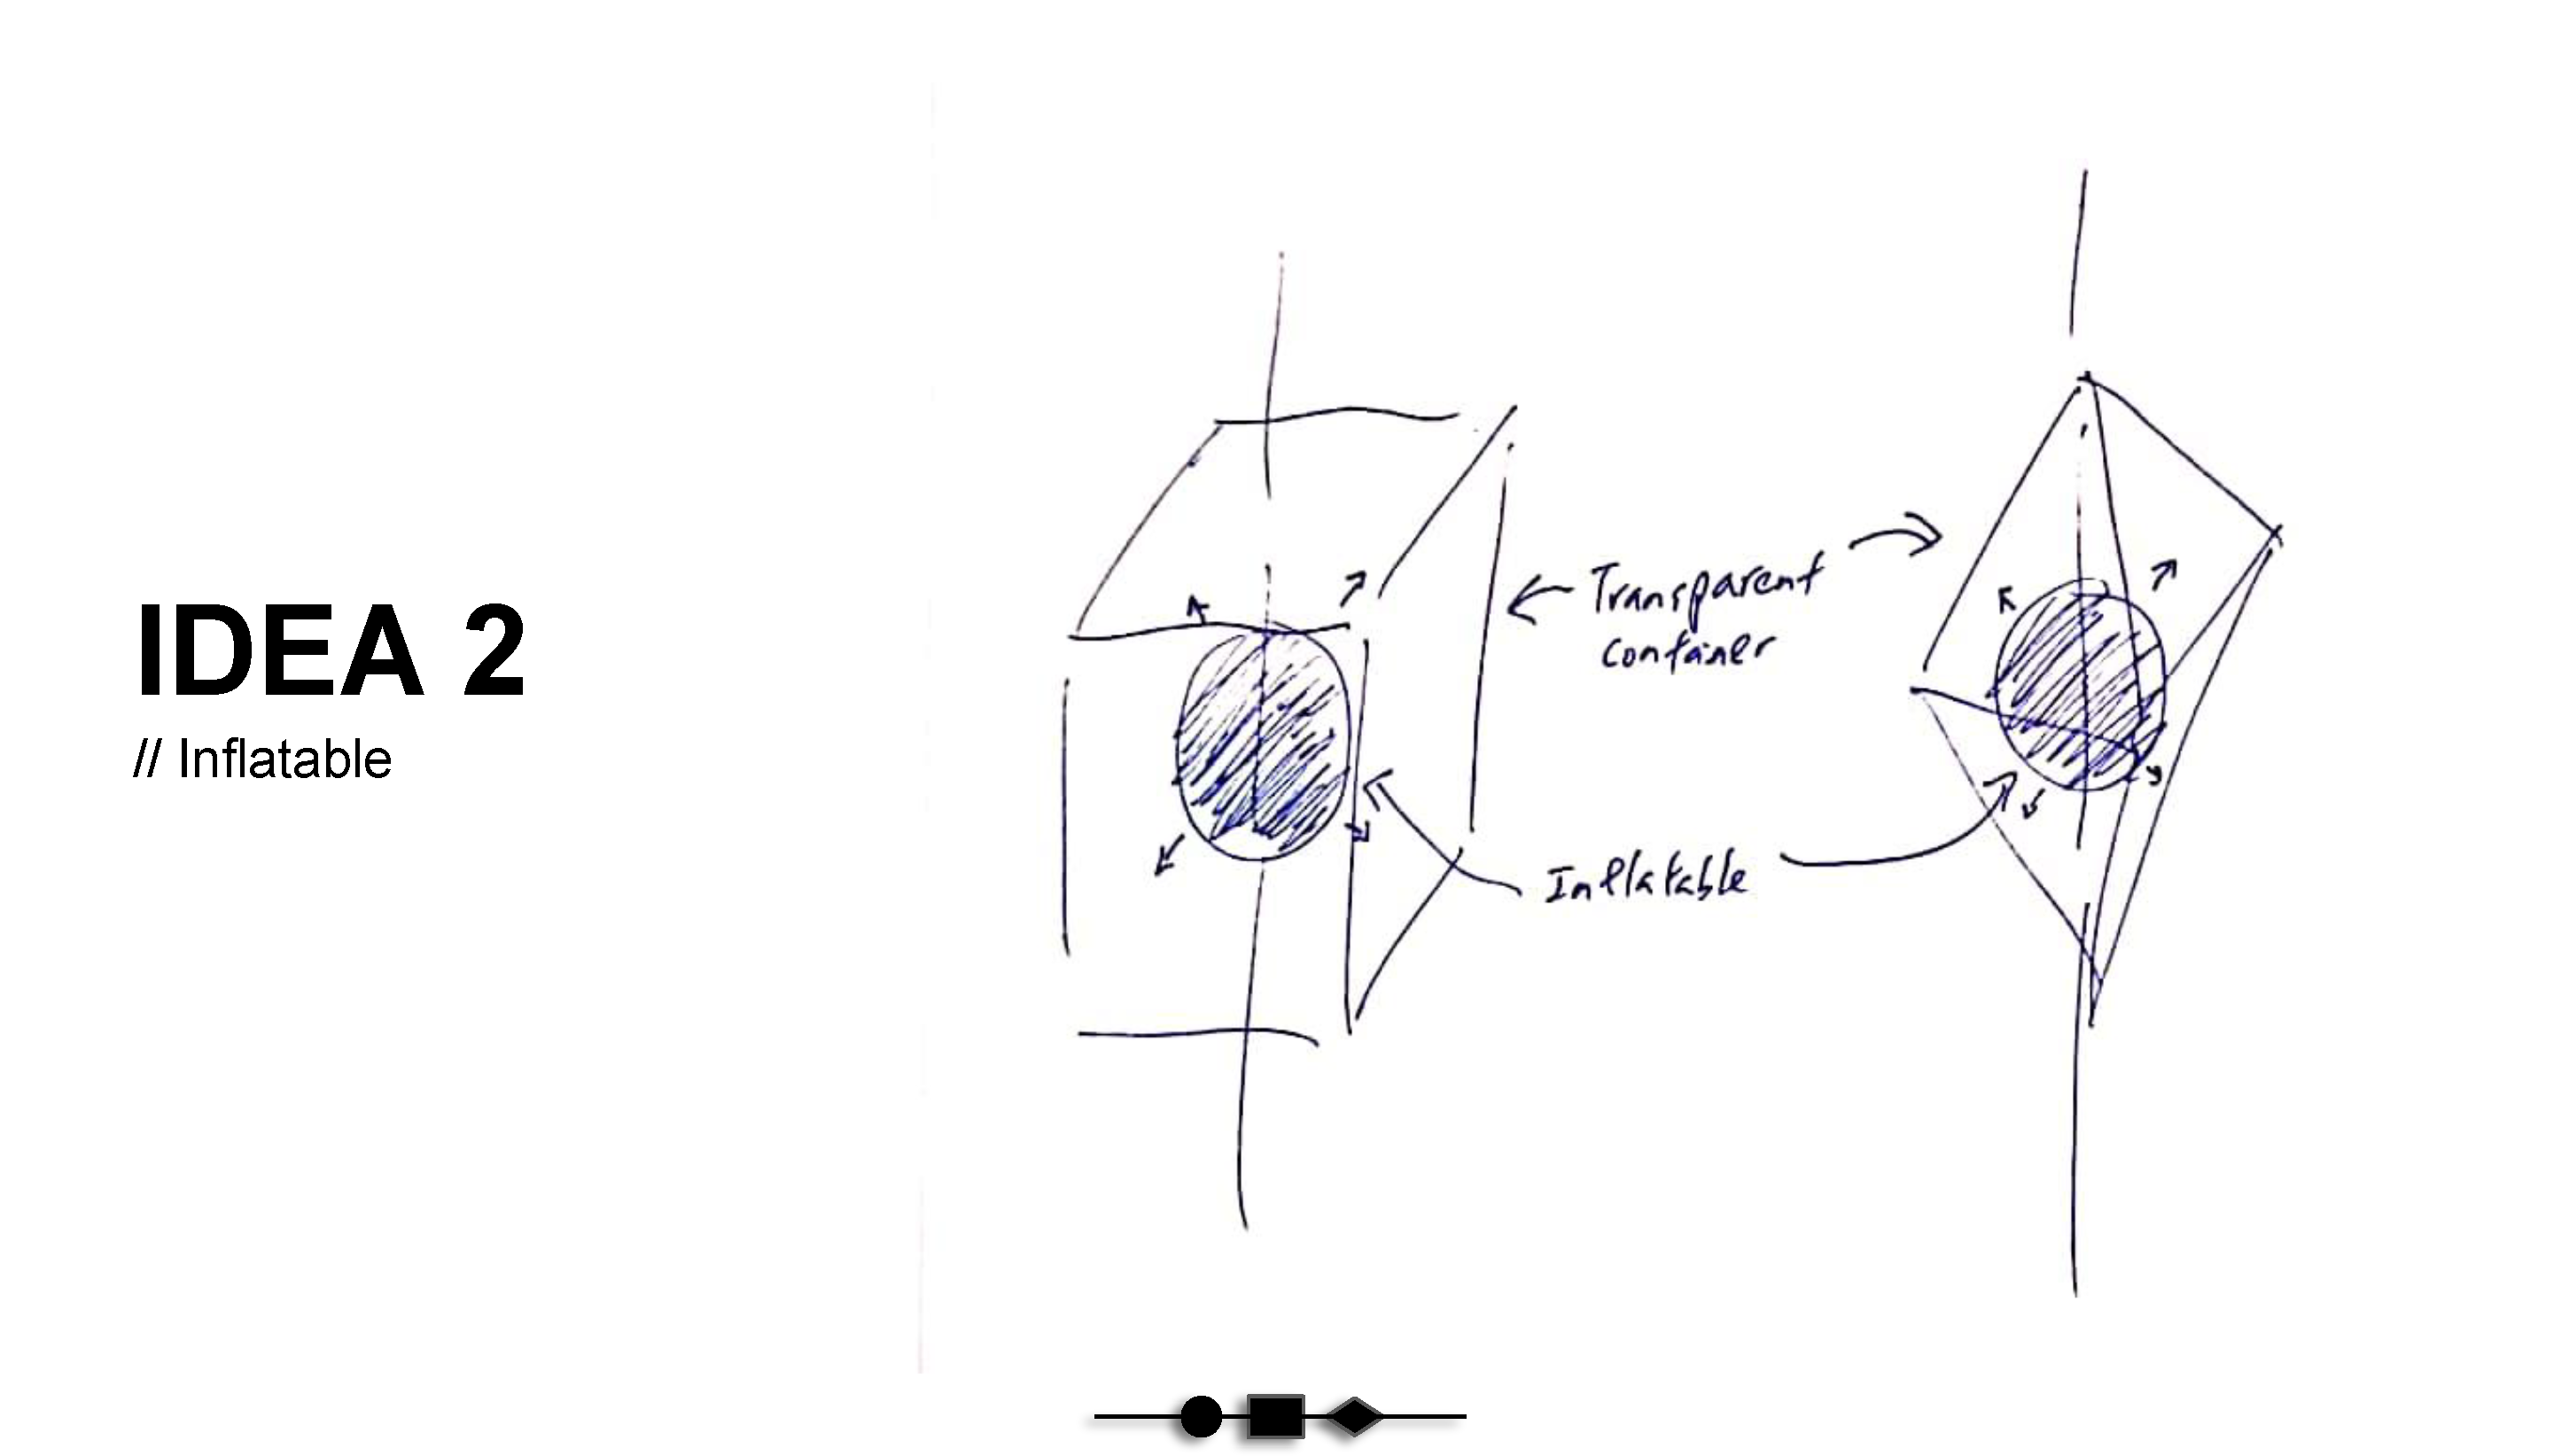 IDEA 2
// Inflatable
Transparent
container
Inflatable